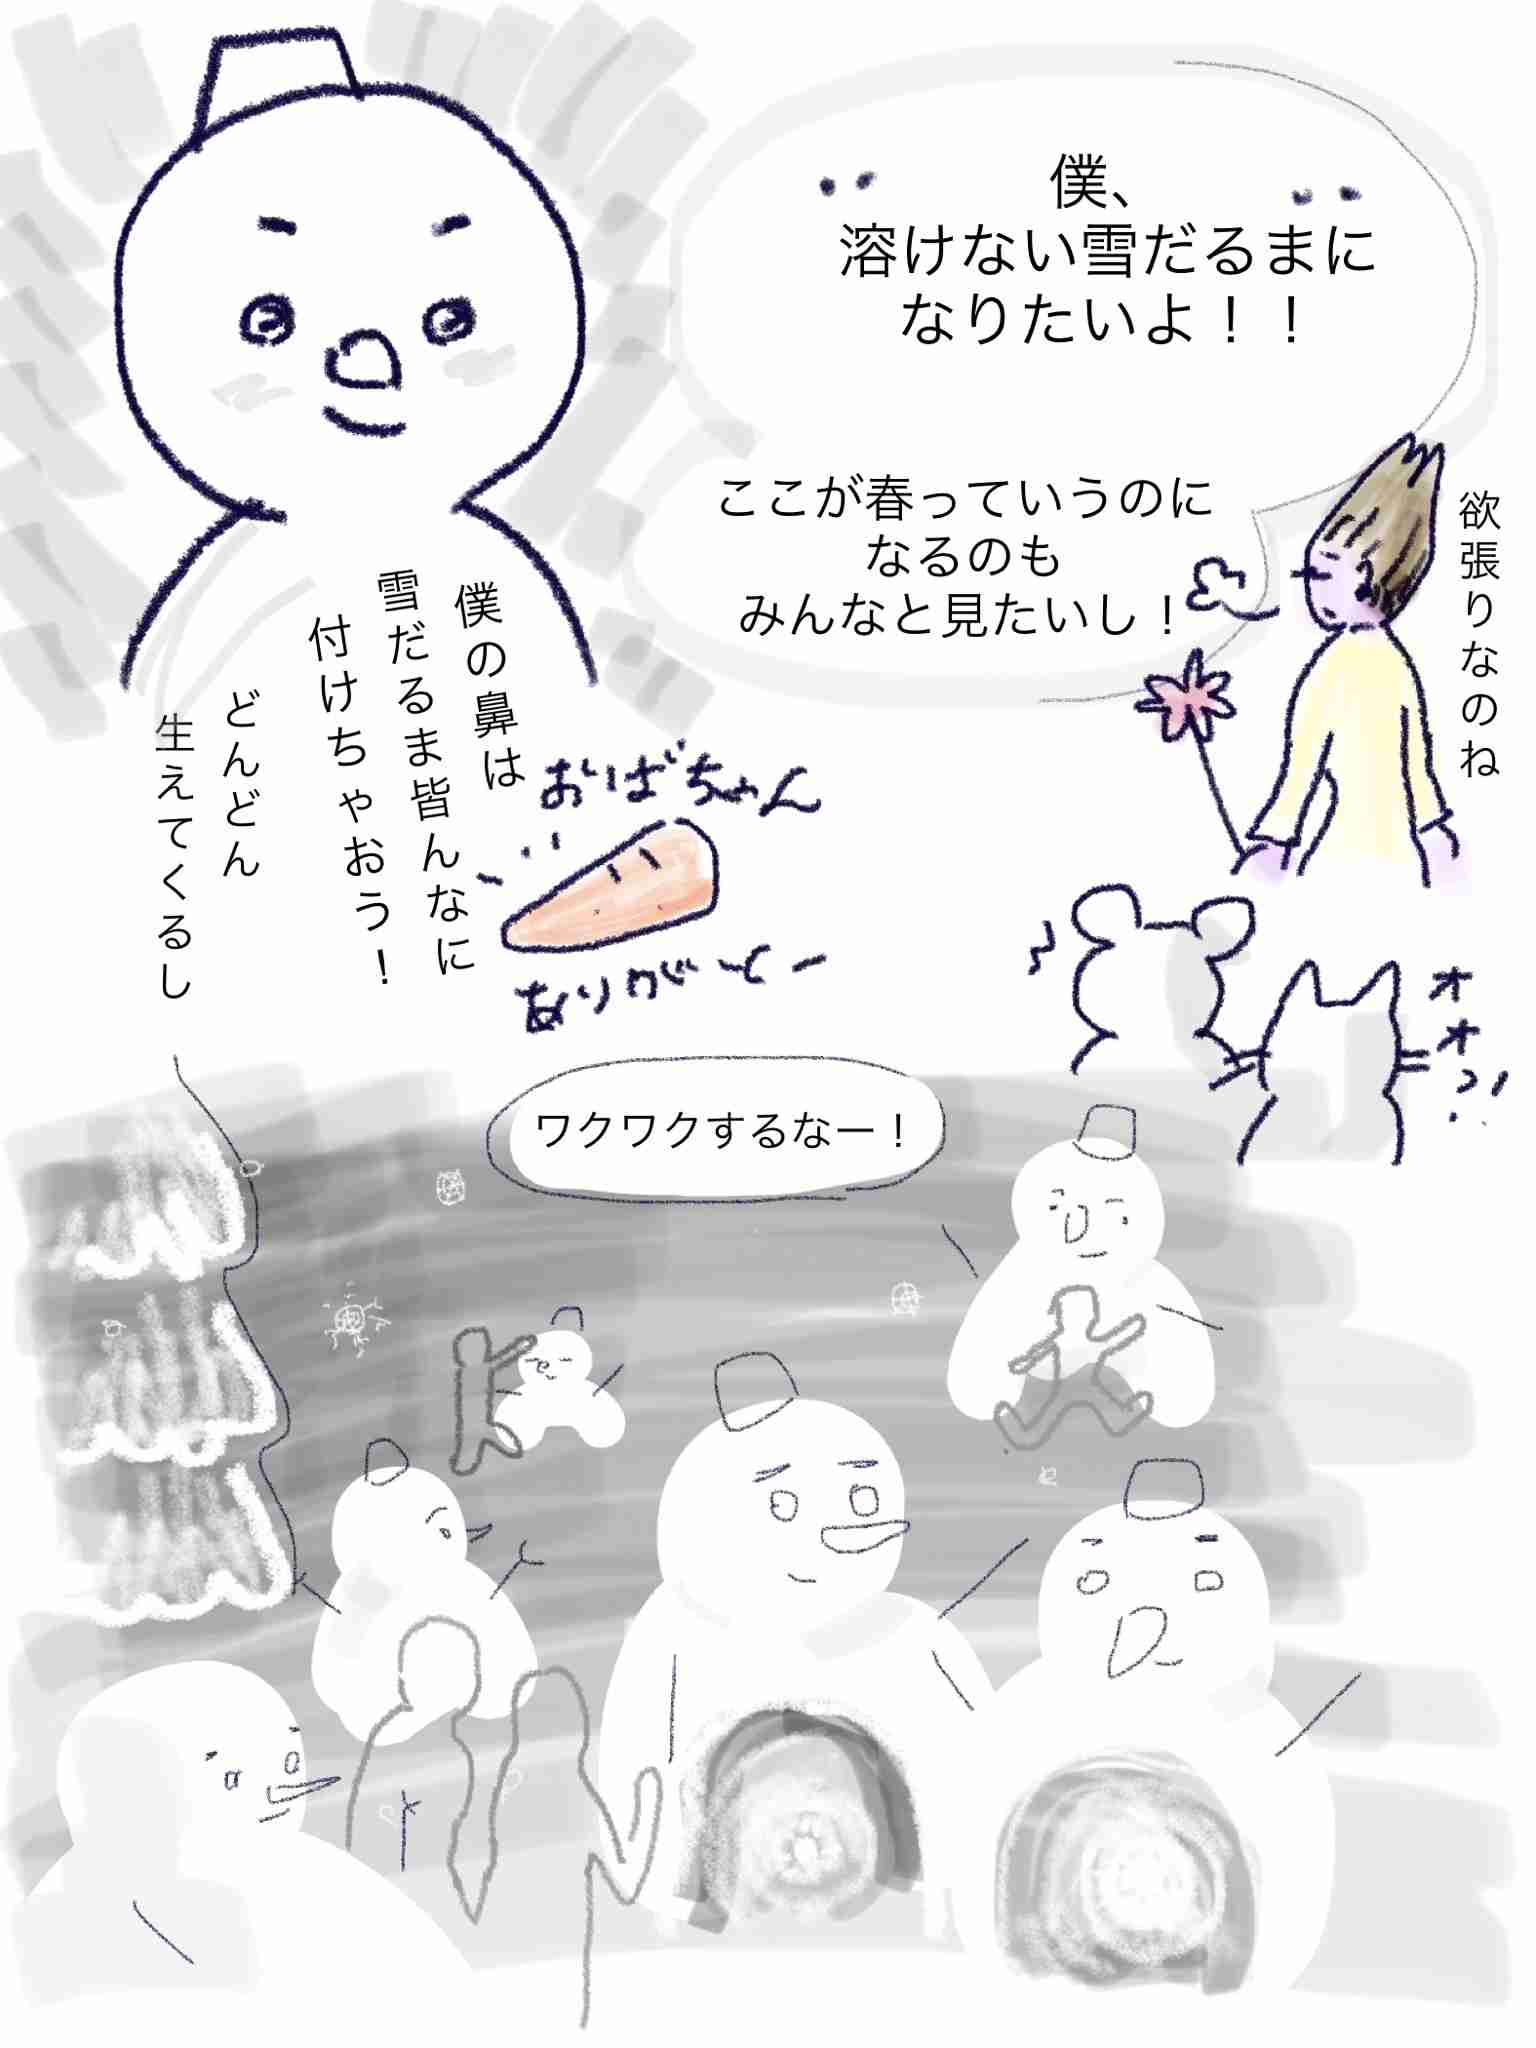 僕、
溶けない雪だるまに
なりたいよ！！
ここが春っていうのに
なるのも
みんなと見たいし！
欲張りなのね
僕の鼻は
雪だるま皆んなに
付けちゃおう！
どんどん
生えてくるし
おばちゃん
ありがとー
オオっ!
ワクワクするなー！